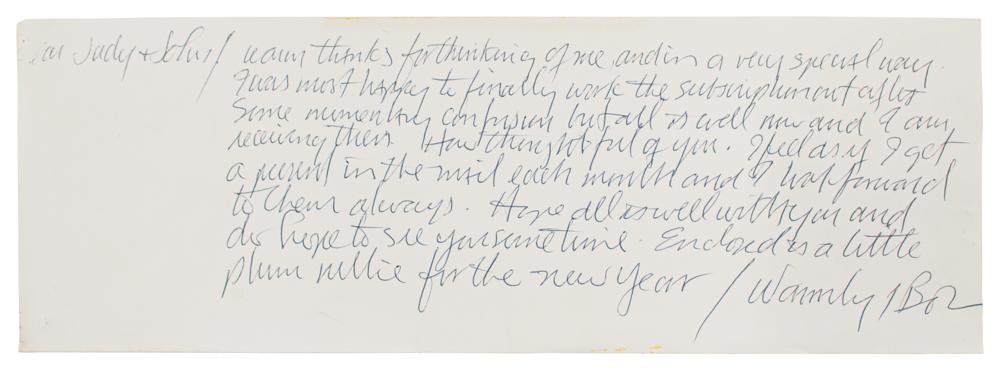 Dear Judy + John / warm thanks for thinking of me and in a very special way.
I was most happy to finally work the subscription out after
some momentary confusion but all is well now and I am
receiving them. How thoughtful of you. I feel as if I get
a present in the mail each month and I look forward
to them always. Hope all is well with you and
do hope to see you sometime. Enclosed is a little
plum nellie for the new year / Warmly / Bob